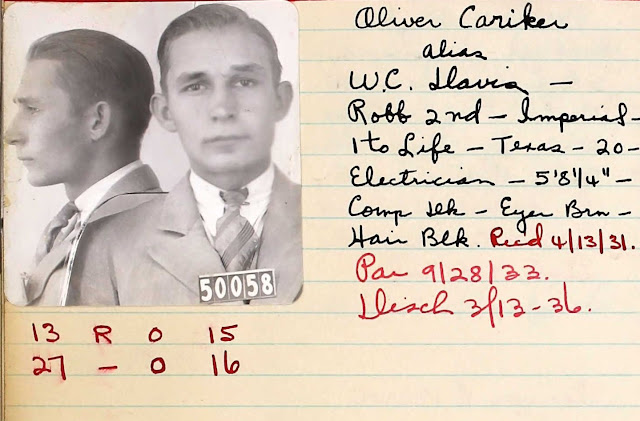 50058
Oliver Cariker
alias
W.C. Davis —
Robb 2nd — Imperial —
1 to Life — Texas — 20 —
Electrician — 5'8 1/4" —
Comp Dk — Eyes Brn —
Hair Blk. Recd 4/13/31.
Par 9/28/33.
Disch 3/13-36.
13 R O 15
27 — O 16